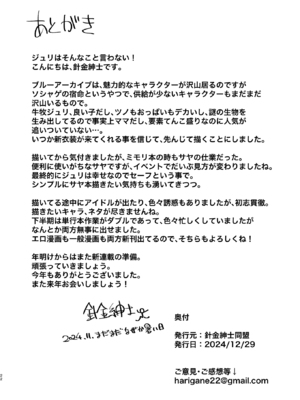 あとがき
ジュリはそんなこと言わない！
こんにちは、針金紳士です。
ブルーアーカイブは、魅力的なキャラクターが沢山居るのですが
ソシャゲの宿命というやつで、供給が少ないキャラクターもまだまだ
沢山いるもので。
牛牧ジュリ、良い子だし、ツノもおっぱいもデカいし、謎の生物を
生み出してるので事実上ママだし、要素てんこ盛りなのに人気が
追いついていない…。
いつか新衣装が来てくれる事を信じて、先んじて描くことにしました。
描いてから気付きましたが、ミモリ本の時もサヤの仕業だった。
便利に使いがちなサヤですが、イベントでだいぶ見方が変わりましたね。
最終的にジュリは幸せなのでセーフという事で。
シンプルにサヤ本描きたい気持ちも湧いてきつつ。
描いてる途中にアイドルが出たり、色々誘惑もありましたが、初志貫徹。
描きたいキャラ、ネタが尽きませんね。
下半期は単行本作業がダブルであって、色々忙しくしていましたが
なんとか両方無事に出せました。
エロ漫画も一般漫画も両方新刊出てるので、そちらもよろしくね！
年明けからはまた新連載の準備。
頑張っていきましょう。
今年もありがとうございました。
また来年お会いしましょう！
針金紳士
2024.11.まだまだなぜか暑い日
奥付
発行元：針金紳士同盟
発行日：2024/12/29
ご意見・ご感想等↓
harigane22@gmail.com